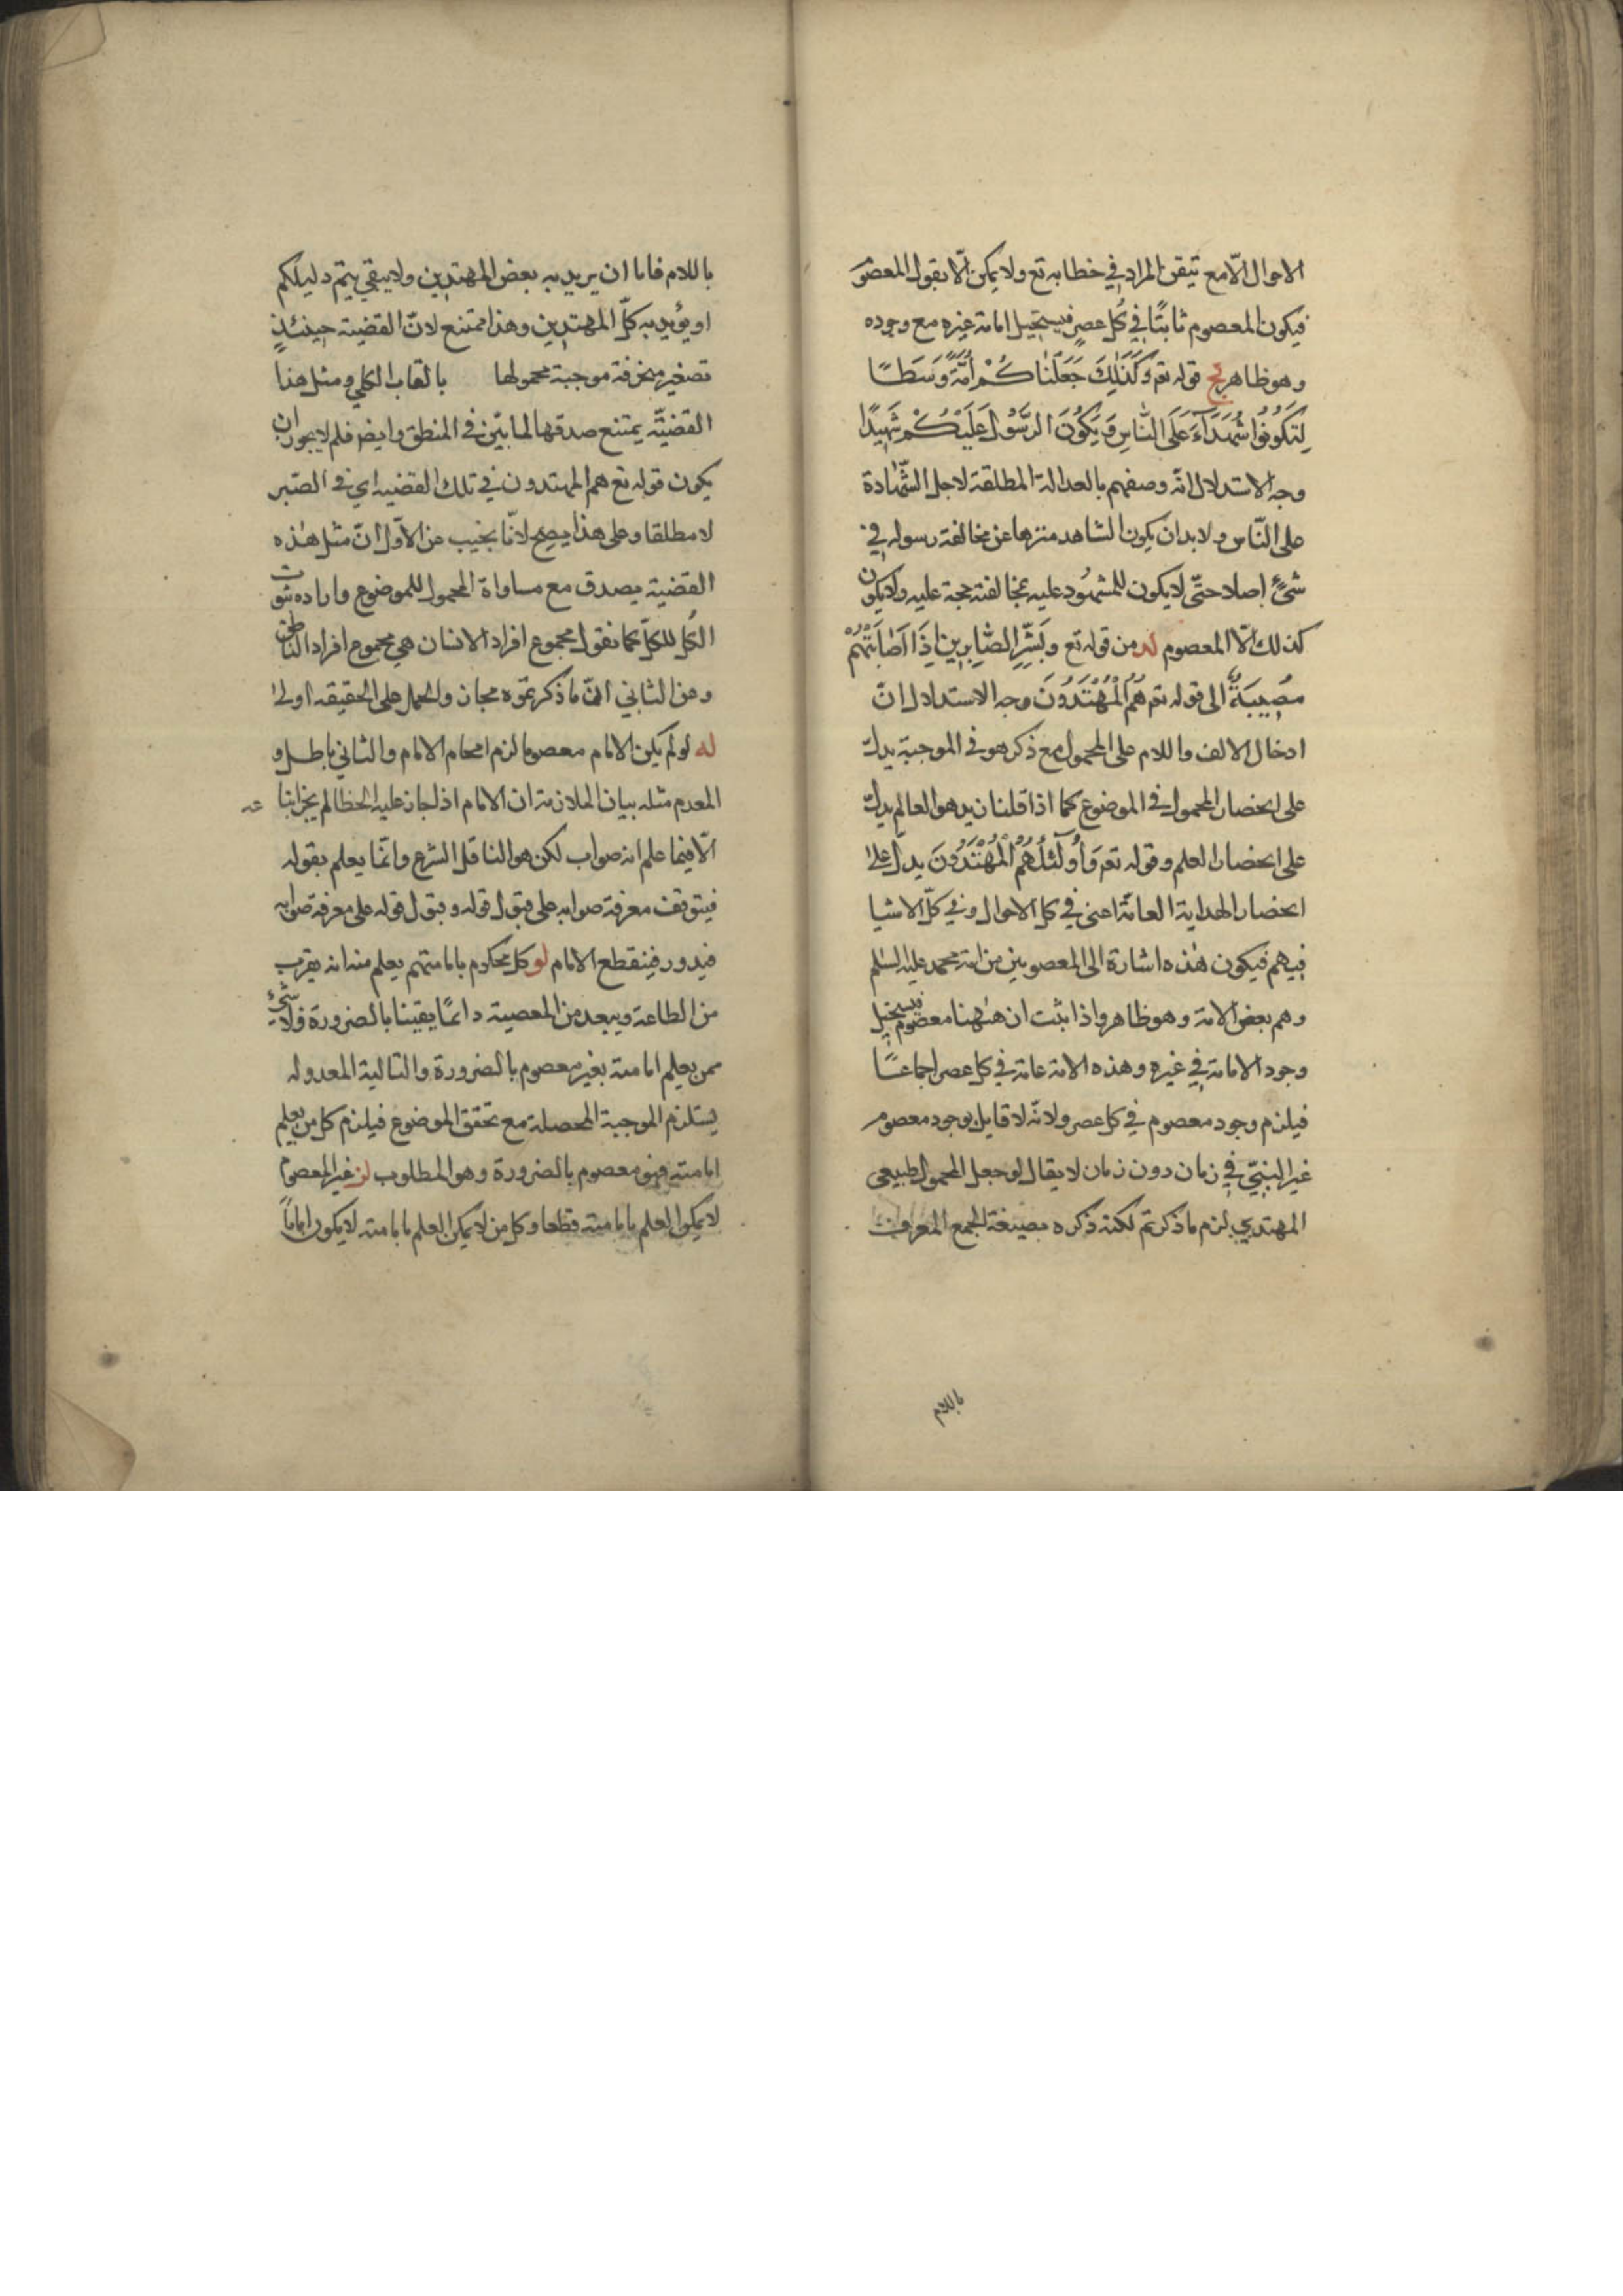 الاحوال الّا مع تيقن المراد في خطابه تع ولا يمكن الّا بقول المعصوم
فيكون المعصوم ثابتًا في كُل عصرٍ فيستحيل امامة غيره مع وجوده
وهو ظاهر لج قوله تع وَكَذَلِكَ جَعَلْنَاكُمْ أُمَّةً وَسَطًا
لِتَكُونُوا شُهَدَآءَ عَلَى النَّاسِ وَيَكُونَ الرَّسُولُ عَلَيْكُمْ شَهِيدًا
وجه الاستدلال انّه وصفهم بالعدالة المطلقة لاجل الشّهادة
على النّاس ولا بد ان يكون الشاهد منزها عن مخالفة رسوله في
شئٍ اصلا حتّى لا يكون للمشهُود عليه بمخالفته حجة عليه ولا يكون
كذلك الّا المعصوم لد من قوله تع وبَشِّرِ الصَّابِرِين إِذَا أَصَابَتْهُمْ
مُصِيبَةٌ الى قوله تع هُمُ الْمُهْتَدُونَ وجه الاستدلال انّ
ادخال الالف واللام على المحمول مع ذكر هو في الموجبة يدلّ
على انحصار المحمول في الموضوع كما اذا قلنا زيد هو العالم يدلّ
على انحصار العلم وقوله تع وَأُولَئِكَ هُمُ الْمُهْتَدُونَ يدلّ على
انحصار الهداية العامّة اعنى في كل الاحوال وفي كلّ الاشيا
فيهم فيكون هٰذه اشارة الى المعصومين من امة محمد عليه السلم
وهم بعض الامة وهو ظاهر واذا ثبت ان هٰهنا معصوم فيستحيل
وجود الامامة في غيره وهذه الامة عامة في كل عصر اجماعًا
فيلزم وجود معصوم في كل عصر ولانّه لا قايل بوجود معصوم
غير النبيّ في زمان دون زمان لا يقال لو جعل المحمول طبيعى
المهتدي لزم ما ذكرتم لكنه ذكره بصيغة الجمع المعرف
باللام
باللام فاما ان يريد به بعض المهتدين ولا يبقي يتم دليلكم
او يؤيد به كلّ المهتدين وهذا ممتنع لانّ القضية حينئذٍ
تصغير منحرفة موجبة محمولها بالقاب الكلي ومثل هذا
القضيّة يمتنع صدقها لما بيّن في المنطق وايض فلم لا يجوز ان
يكون قوله تع هم المهتدون في تلك القضيه اي في الصّبر
لا مطلقا وعلى هذا يصح لانّا نجيب عن الاوّل انّ مثل هٰذه
القضية يصدق مع مساواة المحمول للموضوع واراده ثبوت
الكُل للكلّ كما نقول مجموع افراد الانسان هي مجموع افراد الناطق
وعن الثاني انّ ما ذكرتموه مجاز والحمل على الحقيقه اولى
له لو لم يكن الامام معصوما لزم افحام الامام والثاني باطل و
المعدم مثله بيان الملازمة ان الامام اذا جاز عليه الخطا لم يجز اتبا عه
الّا فيما علم انه صواب لكن هو الناقل الشرع وانّما يعلم بقوله
فيتوقف معرفة صوابه على قبول قوله وقبول قوله على معرفة صوابه
فيدور فينقطع الامام لو كل محكوم بامامتهم يعلم منه انه يقرب
من الطاعة ويبعد من المعصية دائمًا يقينا بالضرورة فلا شئ
ممن يعلم امامته بغير معصوم بالضرورة والتالية المعدوله
يستلزم الموجبة المحصلة مع تحقق الموضوع فيلزم كل من يعلم
امامته فهو معصوم بالضرورة وهو المطلوب لز غير المعصوم
لا يمكن العلم بامامته قطعا وكل من لا يمكن العلم بامامته لا يكون اماماً